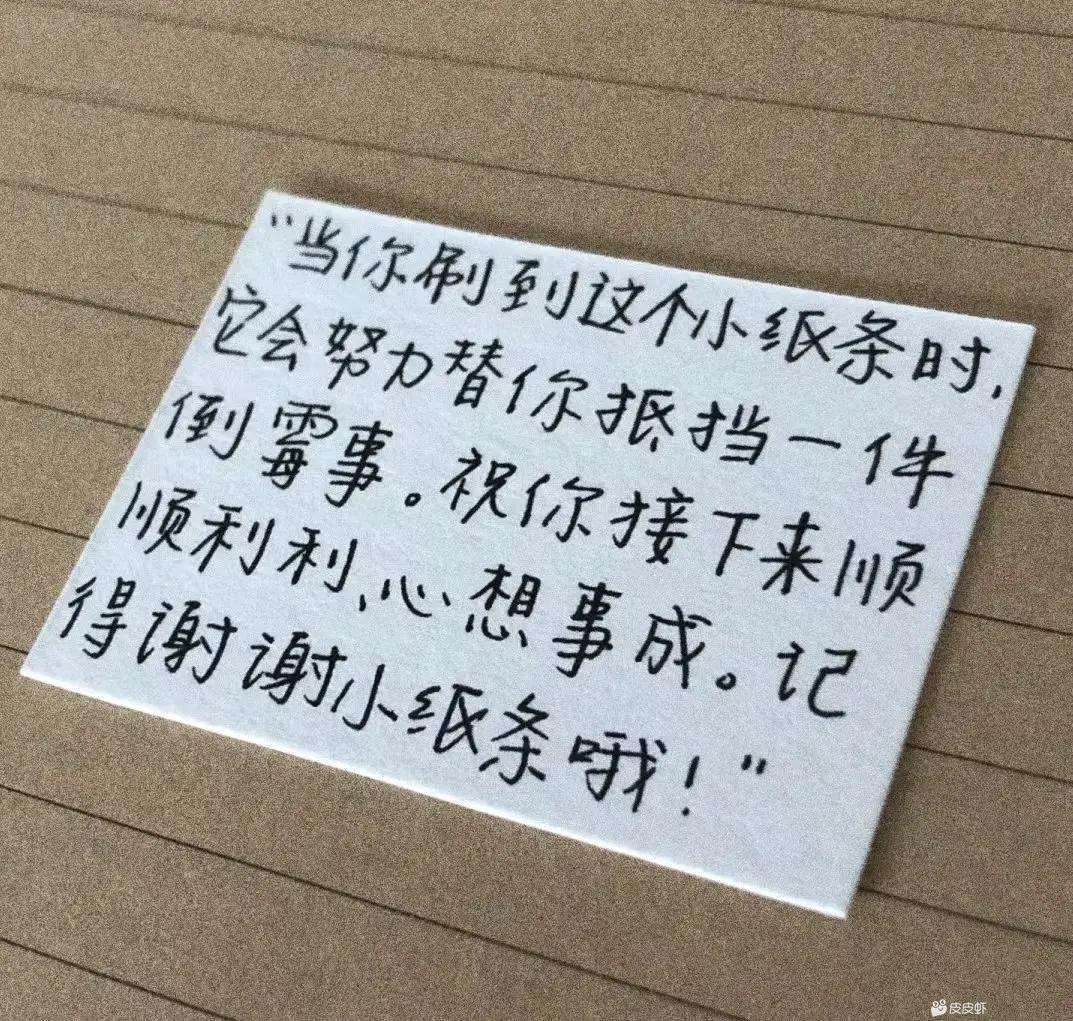 “当你刷到这个小纸条时,
它会努力替你抵挡一件
倒霉事。祝你接下来顺
顺利利、心想事成。记
得谢谢小纸条哦！”
皮皮虾